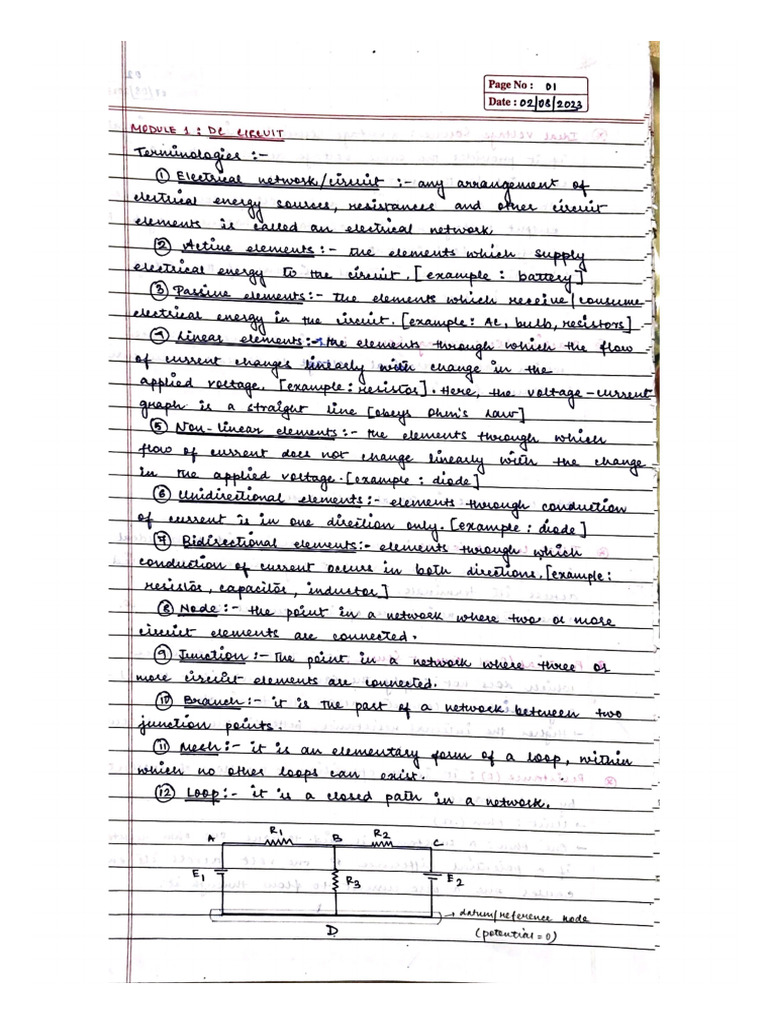 Page No : 01
Date : 02/08/2023
MODULE 1 : DC CIRCUIT
Terminologies :-
① Electrical network/circuit :- any arrangement of
electrical energy sources, resistances and other circuit
elements is called an electrical network.
② Active elements :- The elements which supply
electrical energy to the circuit. [example : battery]
③ Passive elements:- The elements which receive/consume
electrical energy in the circuit. [example: AC, bulb, resistors]
④ Linear elements:- the elements through which the flow
of current changes linearly with change in the
applied voltage. [example: resistor]. Here, the voltage-current
graph is a straight line [obeys Ohm's law]
⑤ Non-linear elements :- the elements through which
flow of current does not change linearly with the change
in the applied voltage. [example : diode]
⑥ Unidirectional elements:- elements through conduction
of current is in one direction only. [example : diode]
⑦ Bidirectional elements:- elements through which
conduction of current occurs in both directions. [example:
resistor, capacitor, inductor]
⑧ Node :- the point in a network where two or more
circuit elements are connected.
⑨ Junction :- The point in a network where three or
more circuit elements are connected.
⑩ Branch :- it is the part of a network between two
junction points.
⑪ Mesh :- it is an elementary form of a loop, within
which no other loops can exist.
⑫ Loop :- it is a closed path in a network.
A R1 B R2 C
E1 R3 E2
→ datum/reference node
D (potential = 0)